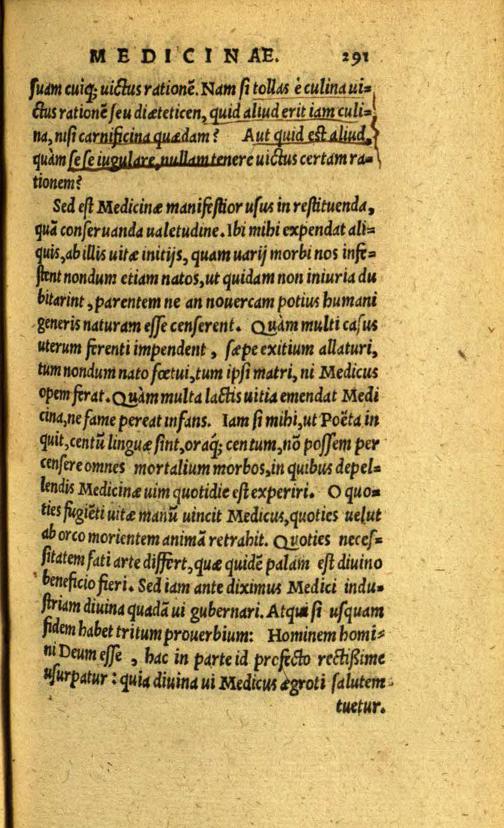 MEDICINAE. 291
suam cuiq; uictus rationē. Nam si tollas è culina ui-
ctus rationē seu diæteticen, quid aliud erit iam culi-
na, nisi carnificina quædam? Aut quid est aliud,
quàm se se iugulare, nullam tenere uictus certam ra-
tionem?
Sed est Medicinæ manifestior usus in restituenda,
quā conseruanda ualetudine. Ibi mihi expendat ali-
quis, ab illis uitæ initijs, quam uarij morbi nos infe-
stent nondum etiam natos, ut quidam non iniuria du
bitarint, parentem ne an nouercam potius humani
generis naturam esse censerent. Quàm multi casus
uterum ferenti impendent, sæpe exitium allaturi,
tum nondum nato fœtui, tum ipsi matri, ni Medicus
opem ferat. Quàm multa lactis uitia emendat Medi
cina, ne fame pereat infans. Iam si mihi, ut Poëta in
quit, centū linguæ sint, oraq; centum, nō possem per
censere omnes mortalium morbos, in quibus depel-
lendis Medicinæ uim quotidie est experiri. O quo-
ties fugiēti uitæ manū uincit Medicus, quoties uelut
ab orco morientem animā retrahit. Quoties neces-
sitatem fati arte differt, quæ quidē palam est diuino
beneficio fieri. Sed iam ante diximus Medici indu-
striam diuina quadā ui gubernari. Atqui si usquam
fidem habet tritum prouerbium: Hominem homi-
ni Deum esse, hac in parte id profecto rectissime
usurpatur: quia diuina ui Medicus ægroti salutem
tuetur.